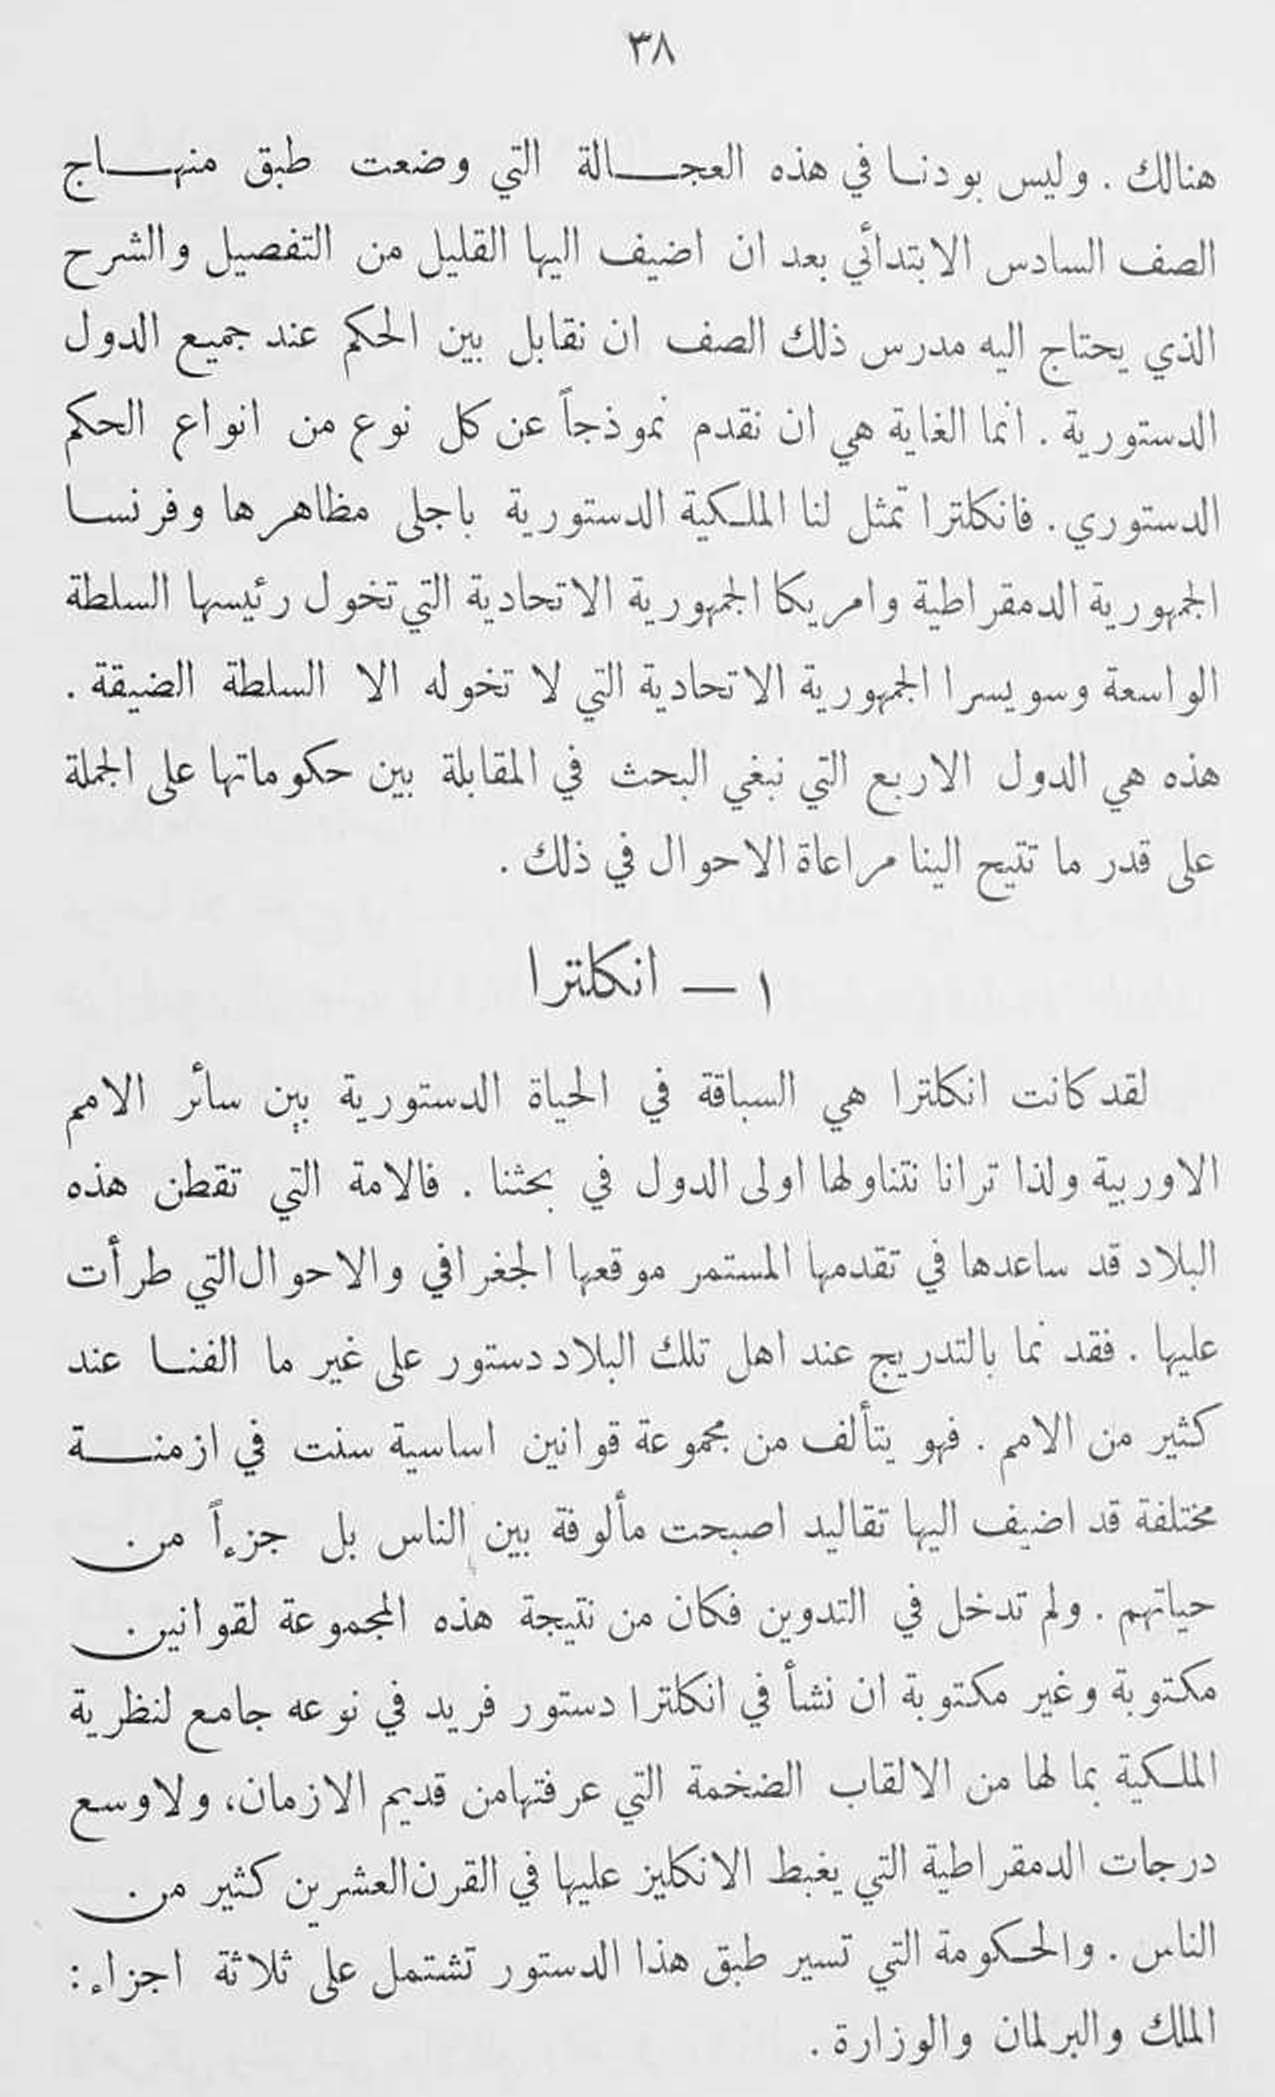 ٣٨
هنالك . وليس بودنا في هذه العجالة التي وضعت طبق منهاج
الصف السادس الابتدائي بعد ان اضيف اليها القليل من التفصيل والشرح
الذي يحتاج اليه مدرس ذلك الصف ان نقابل بين الحكم عند جميع الدول
الدستورية . انما الغاية هي ان نقدم نموذجاً عن كل نوع من انواع الحكم
الدستوري . فانكلترا تمثل لنا الملكية الدستورية باجلى مظاهرها وفرنسا
الجمهورية الدمقراطية وامريكا الجمهورية الاتحادية التي تخول رئيسها السلطة
الواسعة وسويسرا الجمهورية الاتحادية التي لا تخوله الا السلطة الضيقة .
هذه هي الدول الاربع التي نبغي البحث في المقابلة بين حكوماتها على الجملة
على قدر ما تتيح الينا مراعاة الاحوال في ذلك .
١ — انكلترا
لقد كانت انكلترا هي السباقة في الحياة الدستورية بين سائر الامم
الاوربية ولذا ترانا نتناولها اولى الدول في بحثنا . فالامة التي تقطن هذه
البلاد قد ساعدها في تقدمها المستمر موقعها الجغرافي والاحوال التي طرأت
عليها . فقد نما بالتدريج عند اهل تلك البلاد دستور على غير ما الفنا عند
كثير من الامم . فهو يتألف من مجموعة قوانين اساسية سنت في ازمنة
مختلفة قد اضيف اليها تقاليد اصبحت مألوفة بين الناس بل جزءاً من
حياتهم . ولم تدخل في التدوين فكان من نتيجة هذه المجموعة لقوانين
مكتوبة وغير مكتوبة ان نشأ في انكلترا دستور فريد في نوعه جامع لنظرية
الملكية بما لها من الالقاب الضخمة التي عرفتها من قديم الازمان، ولاوسع
درجات الدمقراطية التي يغبط الانكليز عليها في القرن العشرين كثير من
الناس . والحكومة التي تسير طبق هذا الدستور تشتمل على ثلاثة اجزاء :
الملك والبرلمان والوزارة .